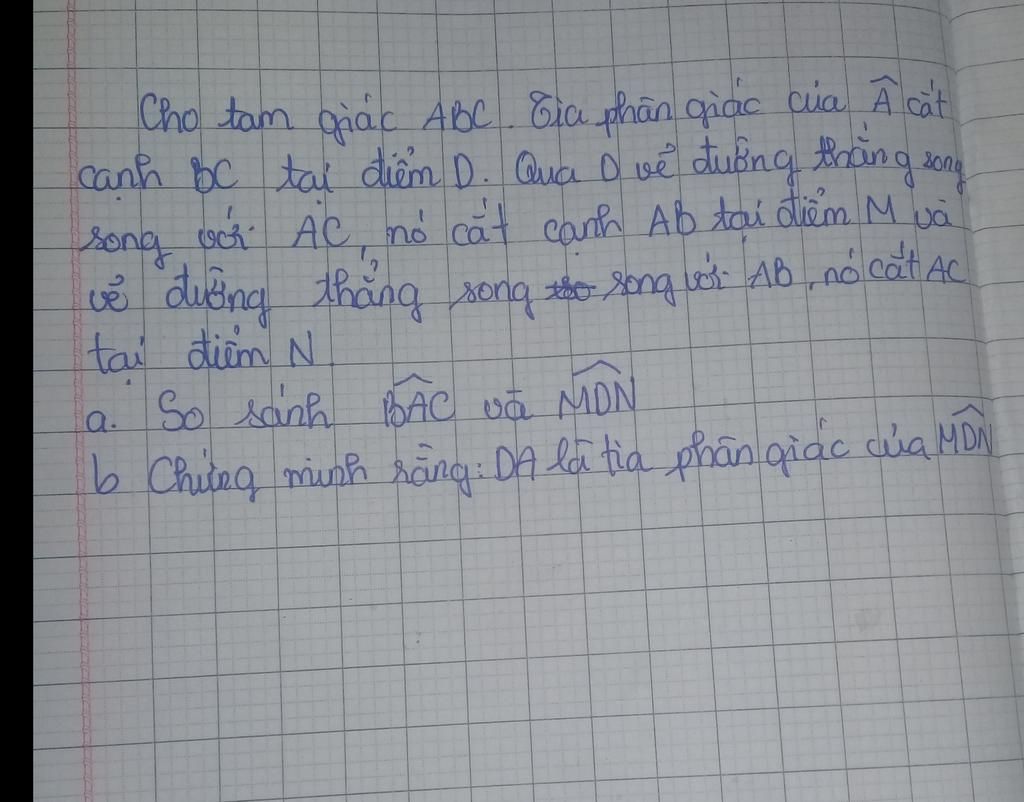 Cho tam giác ABC. Tia phân giác của Â cắt
cạnh BC tại điểm D. Qua D vẽ đường thẳng song
song với AC, nó cắt cạnh AB tại điểm M và
vẽ đường thẳng song song với AB, nó cắt AC
tại điểm N
a. So sánh BAC và MDN
b Chứng minh rằng: DA là tia phân giác của MDN